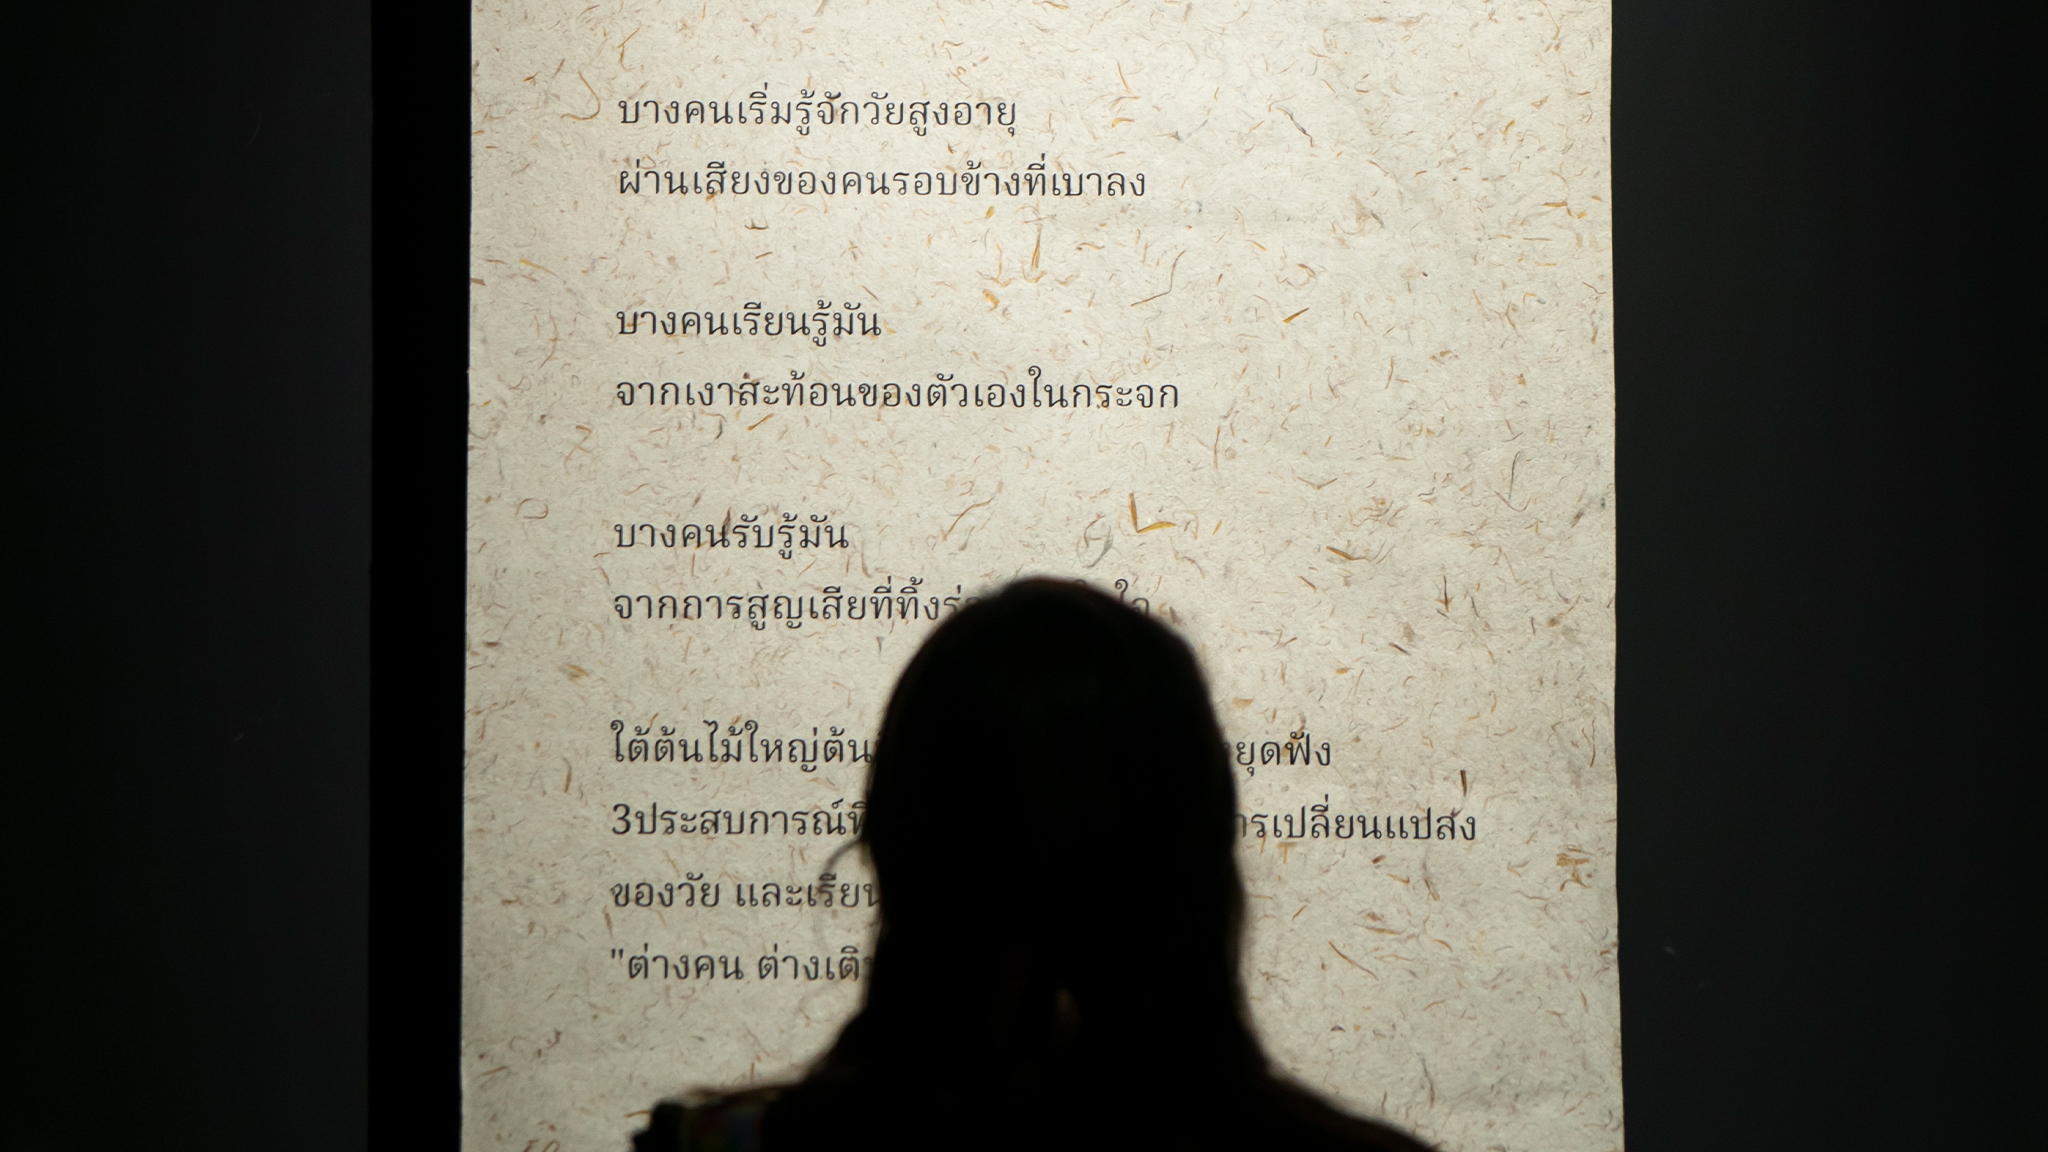 บางคนเริ่มรู้จักวัยสูงอายุ
ผ่านเสียงของคนรอบข้างที่เบาลง
บางคนเรียนรู้มัน
จากเงาสะท้อนของตัวเองในกระจก
บางคนรับรู้มัน
จากการสูญเสียที่ทิ้ง
ใต้ต้นไม้ใหญ่ต้น ยุดฟัง
3ประสบการณ์ ารเปลี่ยนแปลง
ของวัย และเรียน
"ต่างคน ต่าง